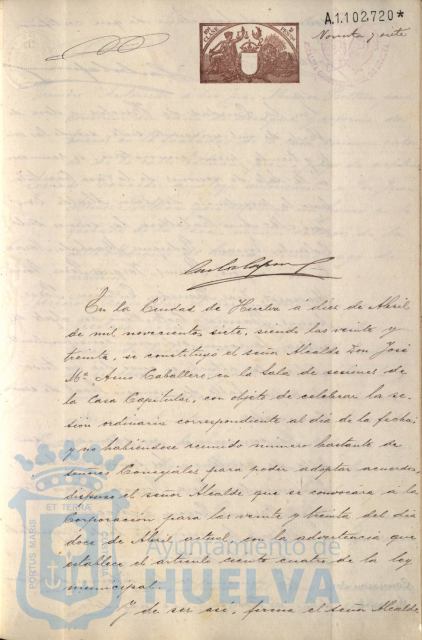 A.1.102.720*
Noventa y siete
En la Ciudad de Huelva á diez de Abril
de mil novecientos siete, siendo las veinte y
treinta, se constituyó el señor Alcalde Don José
Mª. Caballero, en la Sala de sesiones de
la Casa Capitular, con objeto de celebrar la se-
sion ordinaria correspondiente al dia de la fecha;
y no habiéndose reunido número bastante de
señores Concejales para poder adoptar acuerdos,
dispuso el señor Alcalde que se convocára á la
Corporación para las veinte y treinta del dia
doce de Abril actual, con la advertencia que
establece el artículo ciento cuatro de la ley
municipal.
Y de ser asi, firma el señor Alcalde
PORTUS MARIS
ET TERRAE
Ayuntamiento de
HUELVA